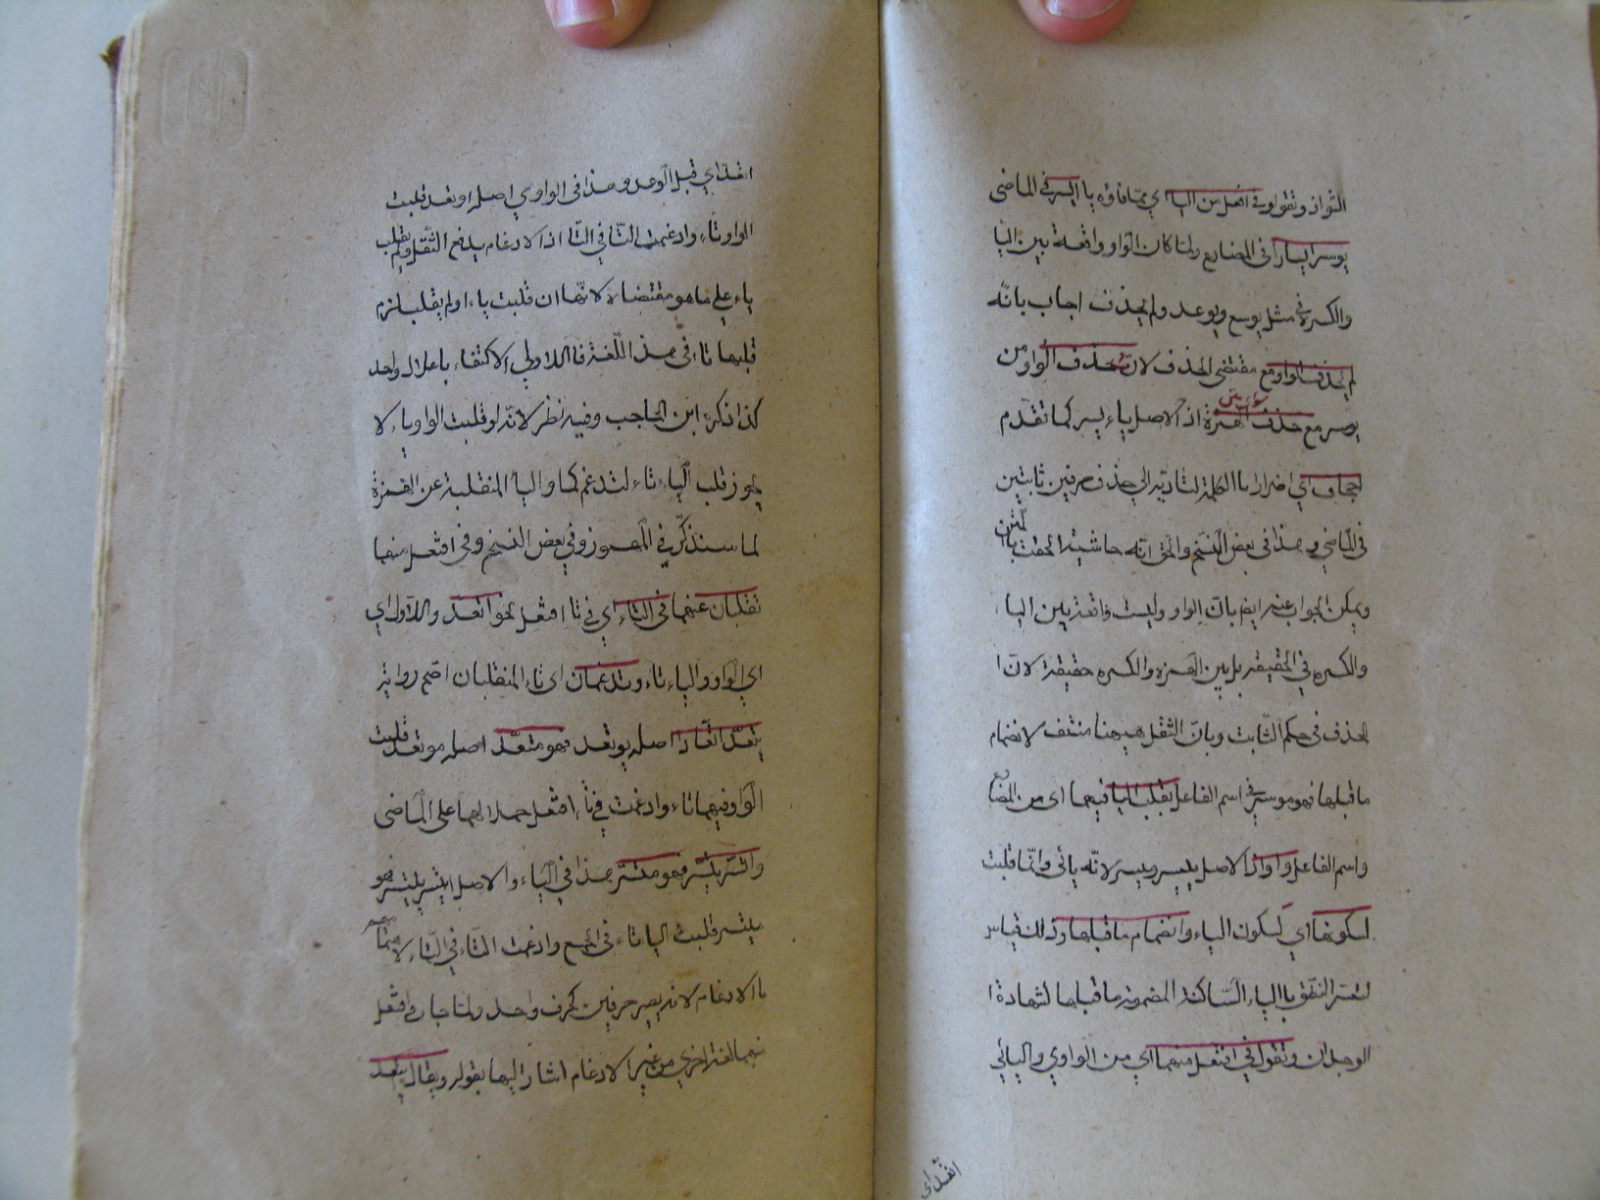 النواذ وتقول في افعل من اليا اي مما فاؤه يا ايسر في الماضى
يوسر ايسارا في المضارع ولما كان الواو واقعة بين اليا
والكسرة في مثل يوسع ويوعد ولم يحذف اجاب بانه
لم يحذف الواو مع مقتضى الحذف لان حذف الواو من
يوسر مع حذف الهمزة اذ الاصل ياء يسر كما تقدم
اجحاف اي اضرار باالكلمة لتاديته الي حذف حرفين ثابتين
في الماضي وهذا في بعض النسخ والحق انه حاشية الحقت بالمتن
ويمكن الجواب عنه ايضا بان الواو وليست واقعة بين اليا
والكسره في الحقيقة بل بين الهمزه والكسره حقيقة لان ا
لحذف في حكم الثابت وبان الثقل ههنا منتف لانضمام
ما قبلها فهو موسر في اسم الفاعل بقلب اليا فيهما اى من المضارع
واسم الفاعل واوا اذ الاصل ييسر وميسر لانه يائى وانما قلبت
لسكونها اي لسكون الياء وانضمام ما قبلها وذلك قياس
لتعسر النطق باالياء الساكنة المضمونة ما قبلها لشهادة ا
لوجدان وتقول في افتعل منهما اي من الواوي واليائي
اتعد اي
اتعد اي قبل الوعد وهذا في الواوي اصله اوتعد قلبت
الواو تاء وادغمت التا في التا اذ الادغام يدفع الثقل ولم يقلب
ياء علي ما هو مقتضاه لانها ان قلبت ياء او لم يقلب لزم
قلبها تاء في هذه اللغة فالاولي الاكتفاء باعلال واحد
كذا ذكره ابن الحاجب وفيه نظر لانه لو قلبت الواو ياء لا
يجوز قلب الياء تاء لتدغم كما في اليا المنقلبة عن الهمزة
لما سنذكر في المهموز وفي بعض النسخ وفي افتعل منهما
تقلبان عنهما في التاء اي في تا افتعل نحو اتعد والاول اي
اي الواو والياء تاء وتدغمان اى تاء المنقلبان اصح رواية
يتعد اتعادا اصله يوتعد فهو متعد اصله موتعد قلبت
الواو فيهما تاء وادغمت في تاء افتعل حملا لهما على الماضى
واتسر يتسر فهو متسر هذا في الياء والاصل ايتسر ييتسر فهو
ميتسر قلبت اليا تاء في الجميع وادغمت التاء في التاء
باالادغام لانه يصير حرفين كحرف واحد ولما جاء في افتعل
منهما لغة اخري من غير الادغام اشار اليها بقوله ويقال يتعد